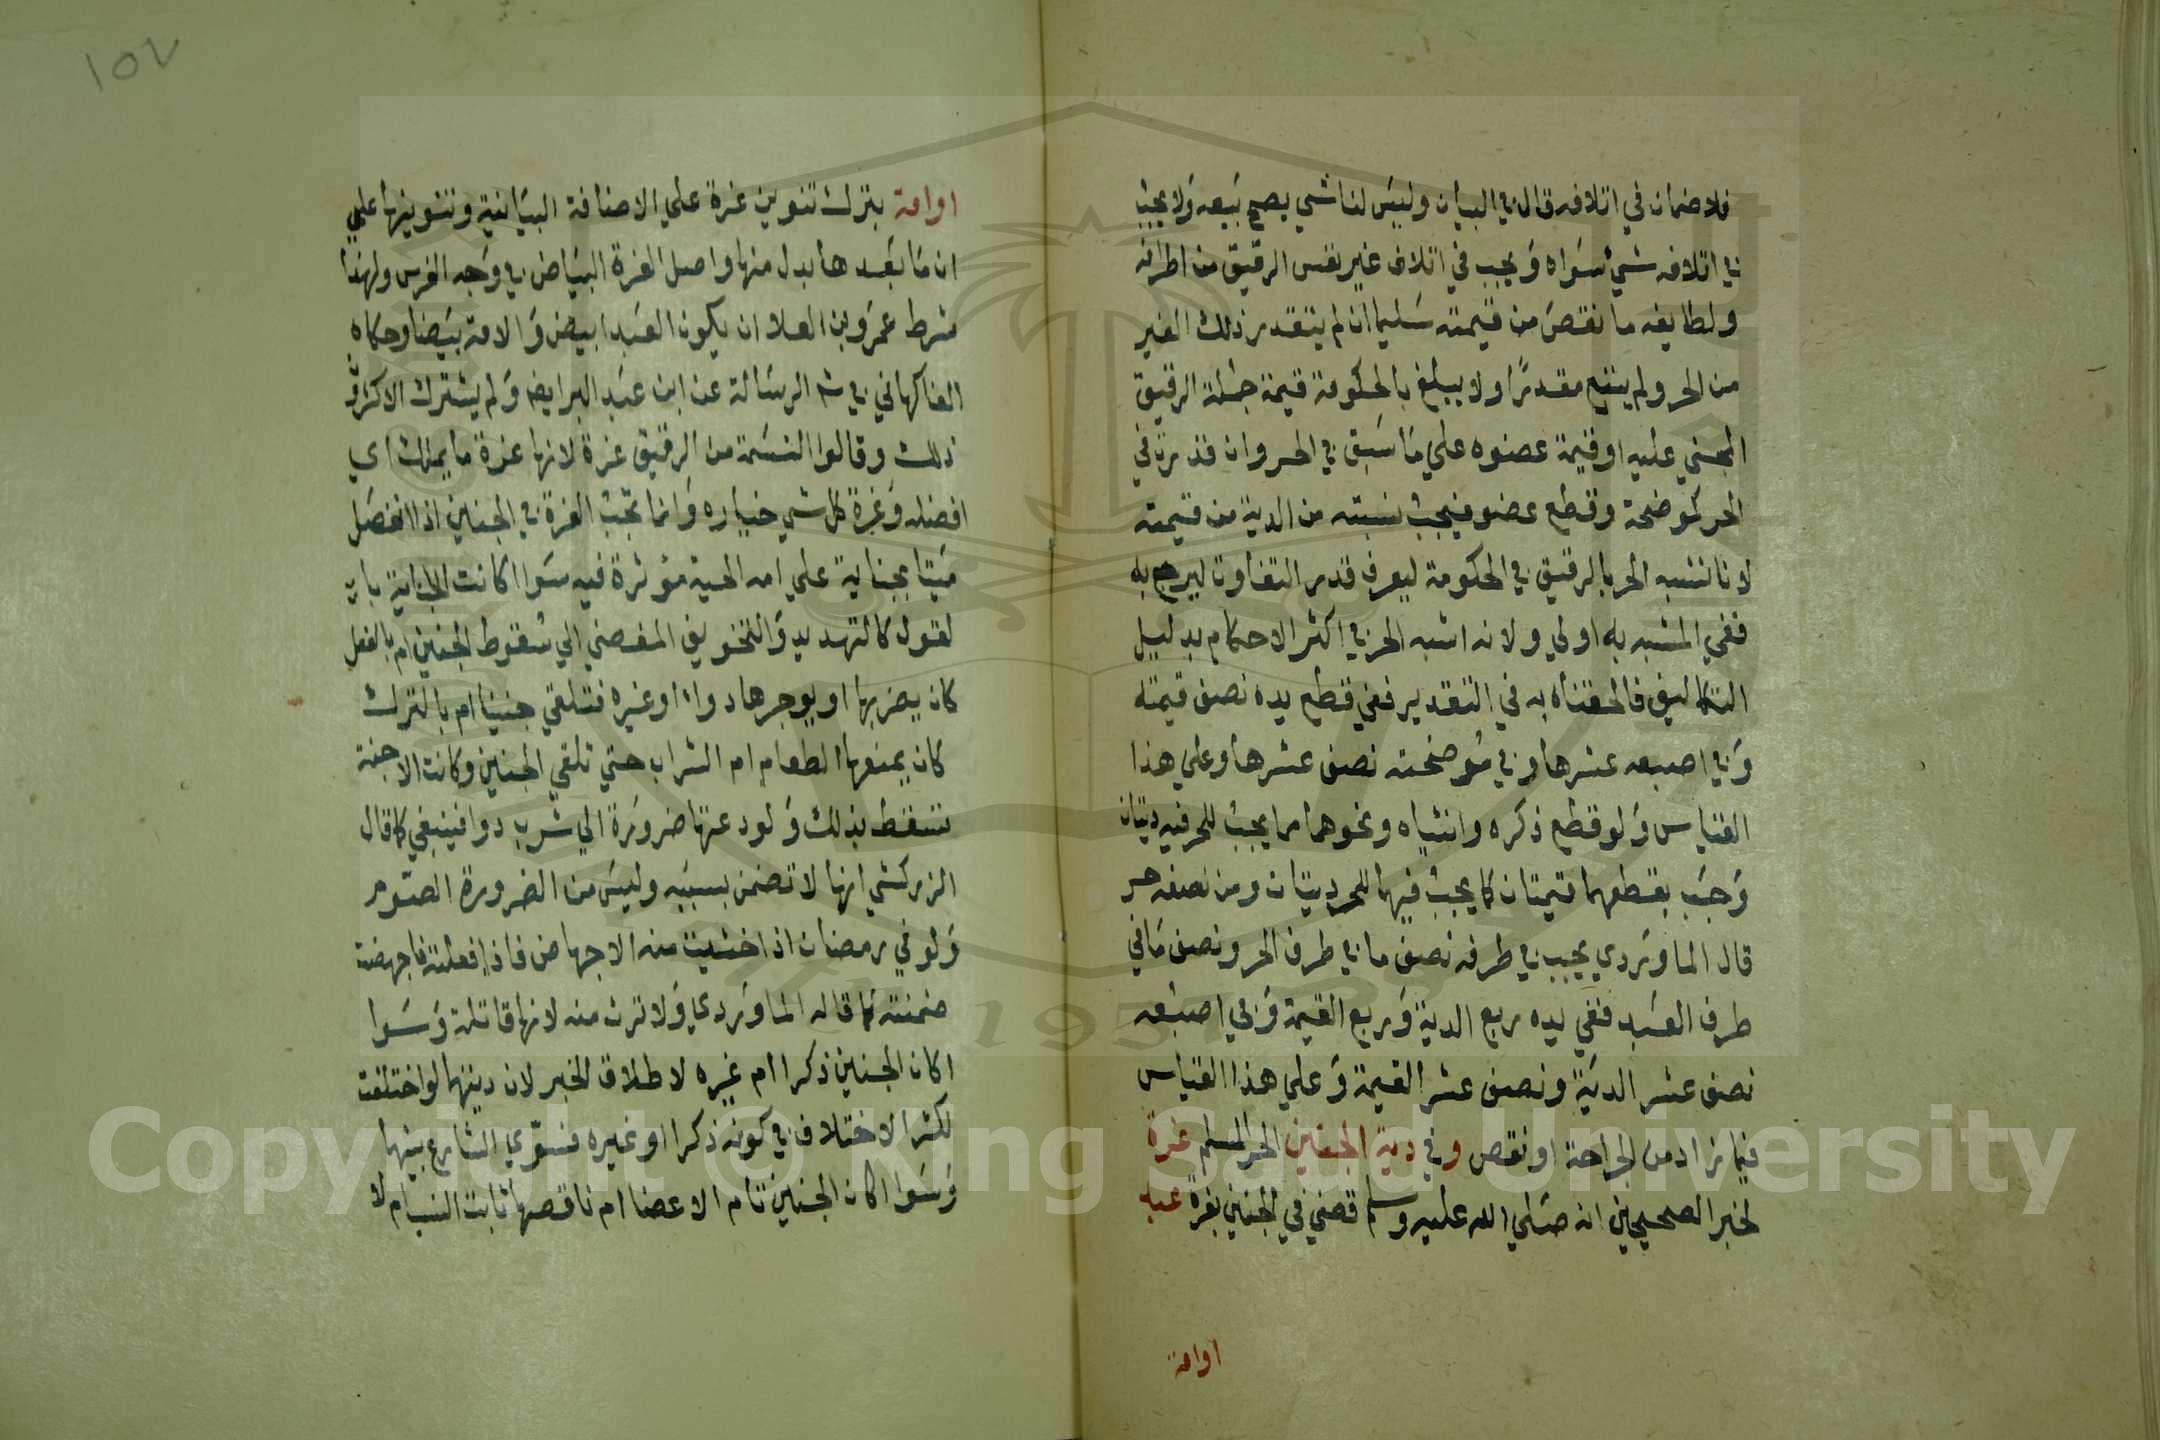 فلا ضمان في اتلافه قال في البيان وليس لنا شي يصح بيعه ولا يجب
في اتلافه شي سواه و يجب في اتلاف غير نفس الرقيق من اطرافه
ولطايفه ما نقص من قيمته سليما ان لم يتقدر ذلك الغير
من الحر ولم يتبع مقدرا ولا يبلغ بالحكومة قيمة جملة الرقيق
المجني عليه او قيمة عضوه علي ما سبق في الحر وان قدرت في
الحر كموضحة وقطع عضو فيجب نسبته من الدية من قيمته
لانا نشبه الحر بالرقيق في الحكومة ليعرف قدر التفاوت ليرجع به
ففي المشبه به اولي ولانه اشبه الحر في اكثر الاحكام بدليل
التكاليف فالحقناه به في التقدير ففي قطع يده نصف قيمته
و في اصبعه عشرها و في موضحته نصف عشرها وعلي هذا
القياس ولو قطع ذكره وانثياه ونحوهما مما يجب للحر فيه ديتان
وجب بقطعهما قيمتان كما يجب فيهما للحر ديتان ومن نصفه حر
قال الماوردي يجب في طرفه نصف ما في طرف الحر ونصف ما في
طرف العبد ففي يده ربع الدية وربع القيمة و في اصبعه
نصف عشر الدية ونصف عشر القيمة وعلي هذا القياس
فيما زاد من الجراحة او نقص و في دية الجنين الحر المسلم غرة
لخبر الصحيحين انه صلي الله عليه وسلم قضي في الجنين بغرة عبد
اوامة
١٥٧
اوامة بترك تنوين غرة علي الاضافة البيانية وتنوينها علي
ان ما بعدها بدل منها واصل الغرة البياض في وجه الفرس ولهذا
شرط عمرو بن العلا ان يكون العبد ابيض والامة بيضا وحكاه
الفاكهاني في شر الرسالة عن ابن عبد البر ايضا ولم يشترك الاكثرو
ذلك وقالوا النسمة من الرقيق غرة لانها غرة ما يملك اي
افضله وغرة كل شي خياره وانما تجب الغرة في الجنين اذا انفصل
ميتا بجناية علي امه الحية مؤثرة فيه سوا كانت الجناية با
لقول كالتهديد والتخويف المفضي الي سقوط الجنين ام بالفعل
كان يضربها او يوجرها دواء او غيره فتلقي جنينا ام بالترك
كان يمنعها الطعام ام الشراب حتي تلقي الجنين وكانت الاجنة
تسقط بذلك ولو دعتها ضرورة الي شرب دوا فينبغي كما قال
الزركشي انها لا تضمن بسببه وليس من الضرورة الصوم
ولو في رمضان اذا خشيت منه الاجهاض فاذا فعلته فاجهضت
ضمنته كما قاله الماوردي ولا ترث منه لانها قاتلة وسوا
اكان الجنين ذكرا ام غيره لاطلاق الخبر لان ديتهما لو اختلفت
لكثر الاختلاف في كونه ذكرا او غيره فسوي الشارع بينهما
وسوا اكان الجنين تام الاعضا ام ناقصها ثابت النسب ام لا
Copyright © King Saud University
1957